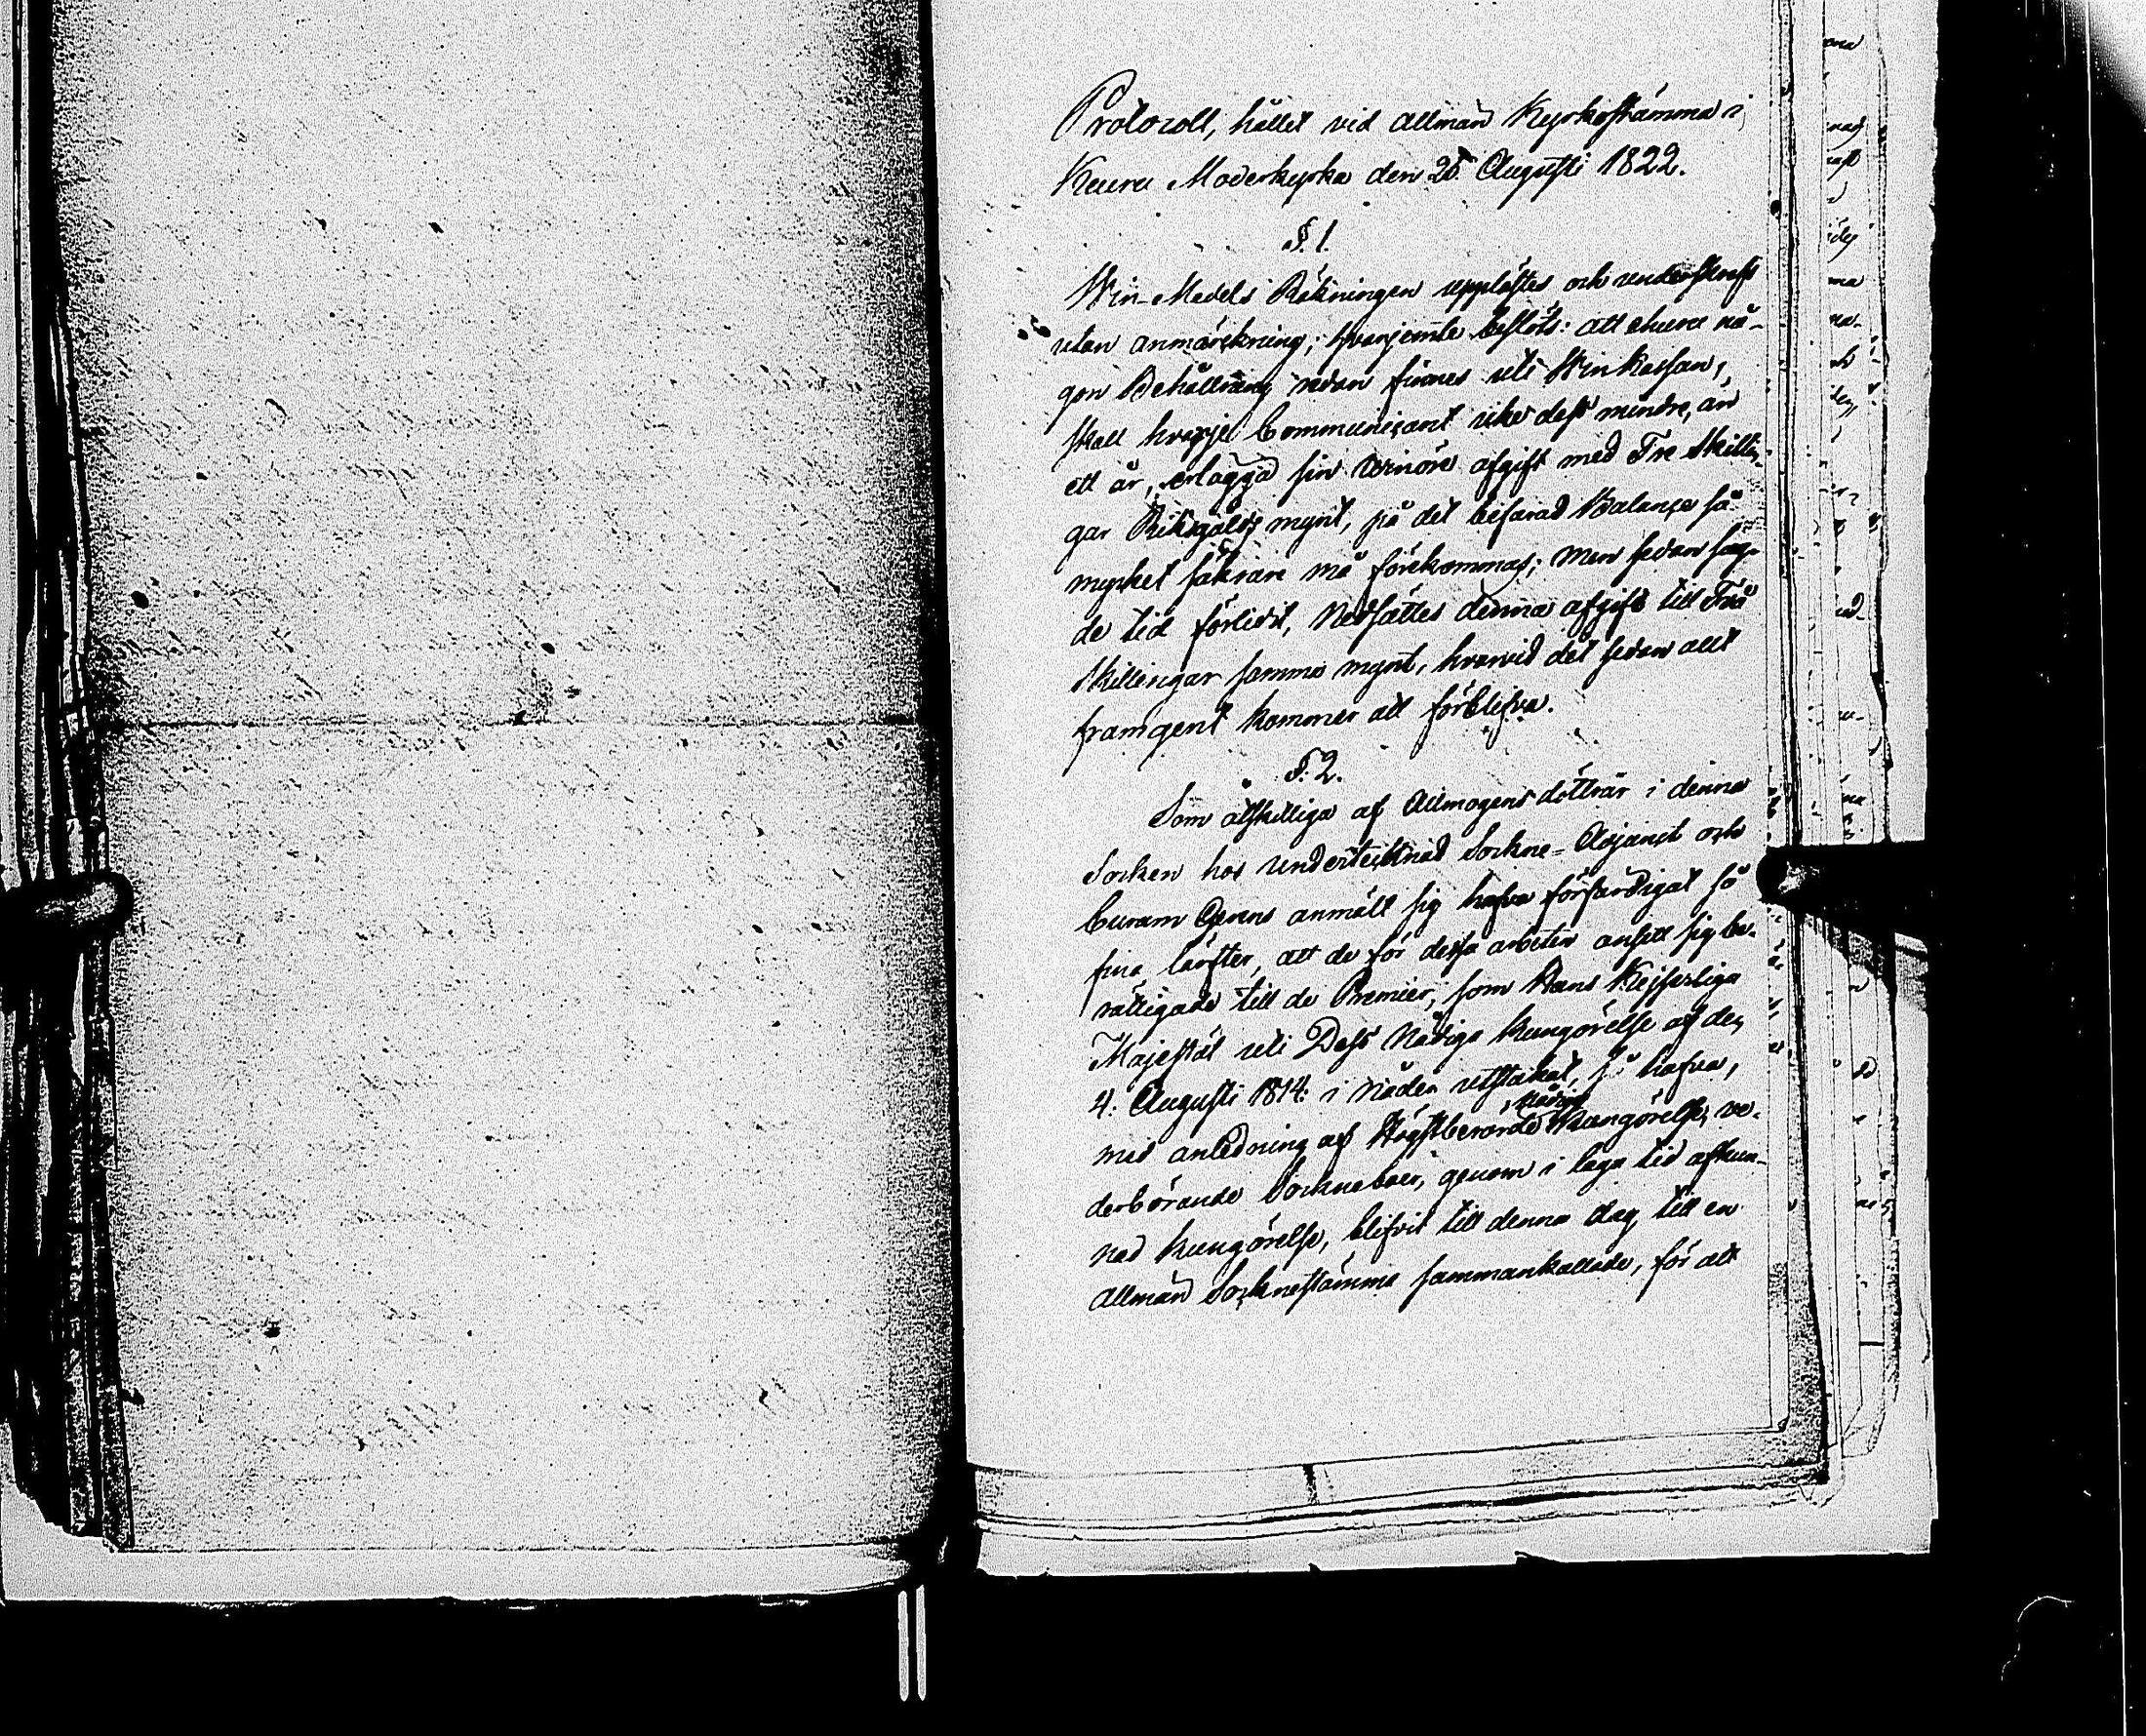 Protocoll, hållet vid allmän Kyrkostämma i
Keuru Moderkyrka den 25 Augusti 1822.
§. 1.
Win-Medels Räkningen upplästes och underskrefs
utan anmärckning; hvarjemte beslöts: att ehuru nå-
gon Behållning redan finnes uti Win Kassan,
skall hvarje Communicant icke dess mindre, än
ett år, erlägga sin Winöre afgift med Tre Skillin-
gar Riksgälds mynt, på det befarad Balance så
mycket säkrare må förekommas; men sedan sag-
de tid förlidit, Nedsättes denna afgift till Två
Skillingar samma mynt, hvarvid det sedan allt
framgent kommer att förblifva.
§. 2.
Som åtskilliga af Allmogens döttrar i denna
Socken hos undertecknad Sockne-Adjunct och
Curam Gerens anmält sig hafva förfärdigat så
fina lärfter, att de för dessa arbeten ansett sig be-
rättigade till de Premier, som Hans Kejserliga
Majestät uti Dess Nådiga Kungörelse af den
4. Augusti 1814. i Nåder utstakat, så hafva,
med anledning af Högstberörde Nådiga Kungörelse, ve-
derbörande Sockneboer, genom i laga tid afkun-
nad Kungörelse, blifvit till denna dag till en
allmän Socknestämma sammankallade, för att